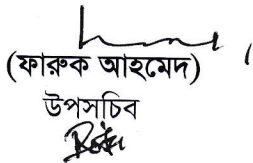 (ফারুক আহমেদ)
উপসচিব